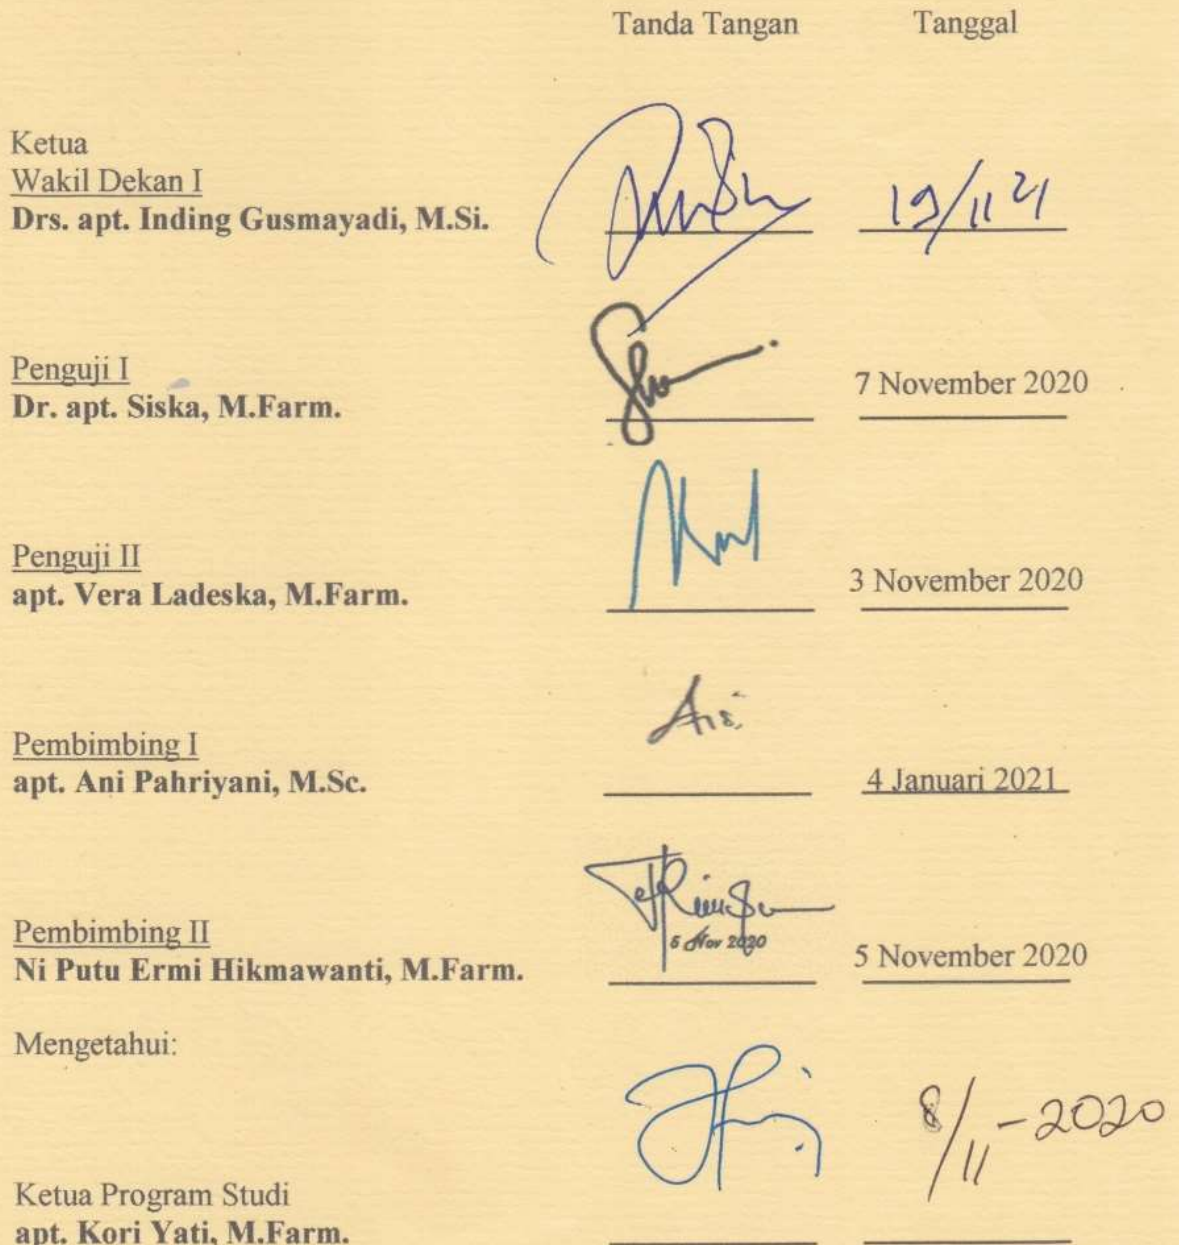 Tanda Tangan Tanggal
Ketua
Wakil Dekan I
Drs. apt. Inding Gusmayadi, M.Si. 19/11 21
Penguji I
Dr. apt. Siska, M.Farm. 7 November 2020
Penguji II
apt. Vera Ladeska, M.Farm. 3 November 2020
Pembimbing I
apt. Ani Pahriyani, M.Sc. 4 Januari 2021
5 Nov 2020
Pembimbing II
Ni Putu Ermi Hikmawanti, M.Farm. 5 November 2020
Mengetahui:
8/11-2020
Ketua Program Studi
apt. Kori Yati, M.Farm.